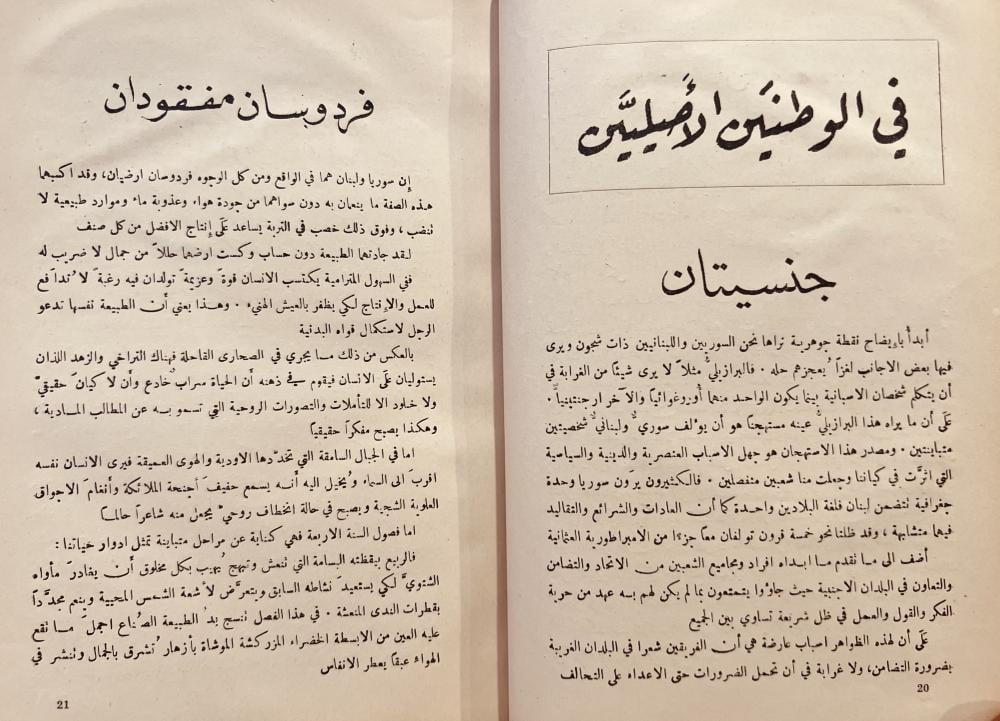 في الوطنيَن الأصيليَّين
جنسيتان
أبدأُ بإيضاح نقطة جوهرية تراها نحن السوريين واللبنانيين ذات شجون ويرى
فيها بعض الاجانب لغزاً يُعجزهم حله . فالبرازيليُّ مثلاً لا يرى شيئاً من الغرابة في
أن يتكلم شخصان الاسبانية بينما يكون الواحد منهما أوروغوائياً والآخر ارجنتينياً .
عَلَى أن ما يراه هذا البرازيليُّ عينه مستهجنًا هو أن يؤلف سوريٌّ ولبنانيٌّ شخصيتين
متباينتين . ومصدر هذا الاستهجان هو جهل الاسباب العنصرية والدينية والسياسية
التي اثرَّت في كياننا وجعلت منا شعبين منفصلين . فالكثيرون يرَون سوريا وحدة
جغرافية تتضمن لبنان فلغة البلادين واحدة كما أن العادات والشرائع والتقاليد
فيهما متشابهة ، وقد ظلتا نحو خمسة قرون تولفان معاً جزءا من الامبراطورية العثمانية
أضف الى ما تقدم ما ابداه افراد ومجاميع الشعبين من الاتحاد والتضامن
والتعاون في البلدان الاجنبية حيث جاؤوا يتمتعون بما لم يكن لهم به عهد من حرية
الفكر والقول والعمل في ظل شريعة تساوي بين الجميع
عَلَى أن لهذه الظواهر اسباب عارضة هي أن الفريقين شعرا في البلدان الغريبة
بضرورة التضامن، ولا غرابة في أن تحمل الضرورات حتى الاعداء على التحالف
20
فردوسان مفقودان
إن سوريا ولبنان هما في الواقع ومن كل الوجوه فردوسان ارضيان، وقد اكسبهما
هذه الصفة ما ينعمان به دون سواهما من جودة هواء وعذوبة ماء وموارد طبيعية لا
تنضب ، وفوق ذلك خصب في التربة يساعد عَلَى إنتاج الافضل من كل صنف
لقد جادتهما الطبيعة دون حساب وكست ارضهما حللاً من جمال لا ضريب له
ففي السهول المترامية يكتسب الانسان قوةً وعزيمةً تولدان فيه رغبةً لا تُدافع
للعمل والإنتاج لكي يظفر بالعيش الهنيء . وهذا يعني أن الطبيعة نفسها تدعو
الرجل لاستكمال قواه البدنية
بالعكس من ذلك ما يجري في الصحارى القاحلة فهناك التراخي والزهد اللذان
يستوليان عَلَى الانسان فيقوم في ذهنه أن الحياة سراب خادع وأن لا كيان حقيقيّ
ولا خلود الا للتأملات والتصورات الروحية التي تسمو به عن المطالب المادية ،
وهكذا يصبح مفكراً حقيقياً
اما في الجبال السامقة التي تخدّدها الاودية والهوى العميقة فيرى الانسان نفسه
اقرب الى السماء ويُخيل اليه أنه يسمع حفيفَ أجنحة الملائكة وأنغامَ الاجواق
العلوية الشجية ويصبح في حالة انخطاف روحيّ يجعل منه شاعراً حالماً
اما فصول السنة الاربعة فهي كناية عن مراحل متباينة تمثل ادوار حياتنا :
فالربيع بيقظته البسامة التي تنعش وتبهج يهيب بكل مخلوق أن يغادرَ مأواه
الشتويَّ لكي يستعيدَ نشاطه السابق ويتعرَّض لأشعة الشمس المحيية وينعم مجدَّداً
بقطرات الندى المنعشة . في هذا الفصل تنسج يدُ الطبيعة الصُناع اجمل ما تقع
عليه العين من الابسطة الخضراء المزركشة الموشاة بأزهار تُشرق بالجمال وتنشر في
الهواء عبقاً يعطر الانفاس
21